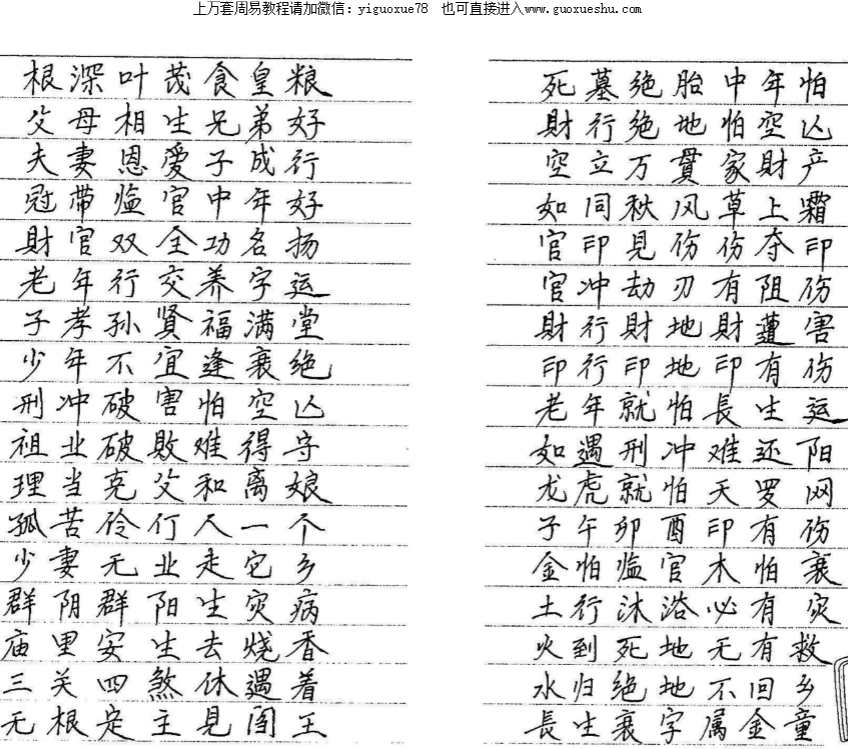 上万套周易教程请加微信：yiguoxue78 也可直接进入www.guoxueshu.com
根深叶茂食皇粮
父母相生兄弟好
夫妻恩爱子成行
冠带临官中年好
財官双全功名扬
老年行交养字运
子孝孙贤福满堂
少年不宜逢衰绝
刑冲破害怕空亡
祖业破敗难得守
理当克父和离娘
孤苦伶仃人一个
少妻无业走它乡
群阴群阳生灾病
庙里安生去烧香
三关四煞休遇着
无根定主見阎王
死墓绝胎中年怕
財行绝地怕空亡
空立万貫家財产
如同秋风草上霜
官印見伤伤夺印
官冲劫刃有阻伤
財行財地財遭害
印行印地印有伤
老年就怕長生运
如遇刑冲难还阳
龙虎就怕天罗网
子午卯酉印有伤
金怕临官木怕衰
土行沐浴必有灾
火到死地无有救
水归绝地不回乡
長生衰字属金童